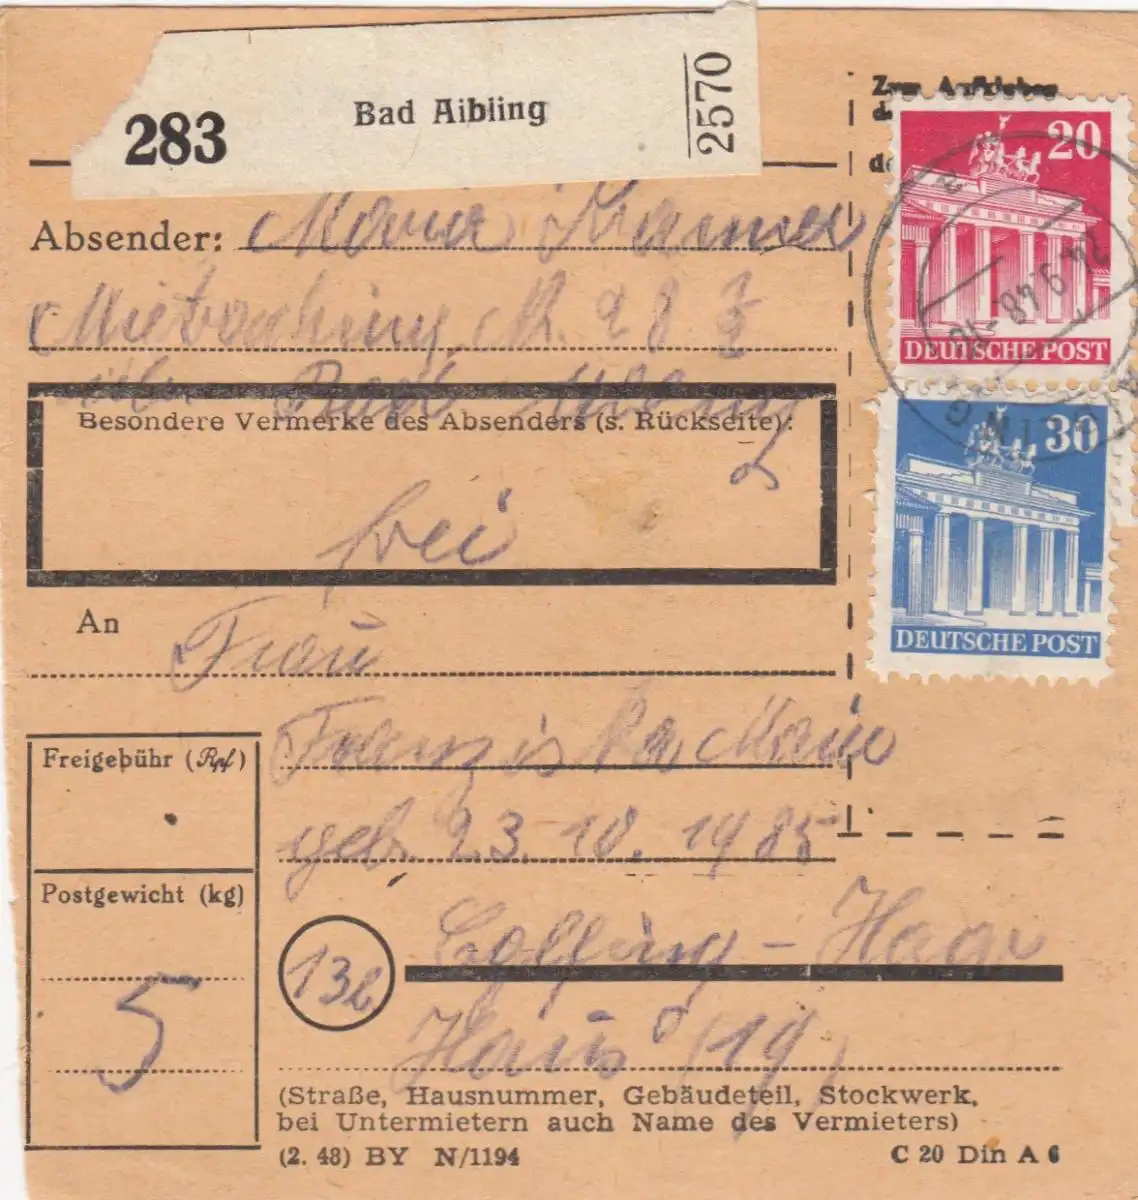 283 Bad Aibling 2570
Zum Aufkleben
Absender: Maria Kramer
Mietraching, N. 28 ½
über Bad Aibling
Besondere Vermerke des Absenders (s. Rückseite):
frei
20
DEUTSCHE POST
24.9.48.-16
30
DEUTSCHE POST
An Frau
Franziska Maier
geb. 23. 10. 1885
Freigebühr (Rpf)
Postgewicht (kg)
5
13b
Haus (19)
(Straße, Hausnummer, Gebäudeteil, Stockwerk,
bei Untermietern auch Name des Vermieters)
(2. 48) BY N/1194
C 20 Din A 6